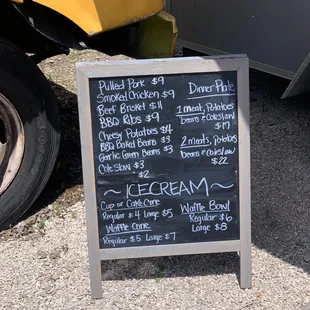 Pulled Pork $9
Smoked Chicken $9
Beef Brisket $11
BBQ Ribs $9
Cheesy Potatoes $4
BBQ Baked Beans $3
Garlic Green Beans $3
Cole slaw $3
$2
Dinner Plate
1 meat, Potatoes
beans & Coleslaw
$17
2 meats, Potatoes
beans & Coleslaw
$22
~ ICECREAM ~
Cup or Cake Cone
Regular $4 Large $5
Waffle Cone
Regular $5 Large $7
Waffle Bowl
Regular $6
Large $8